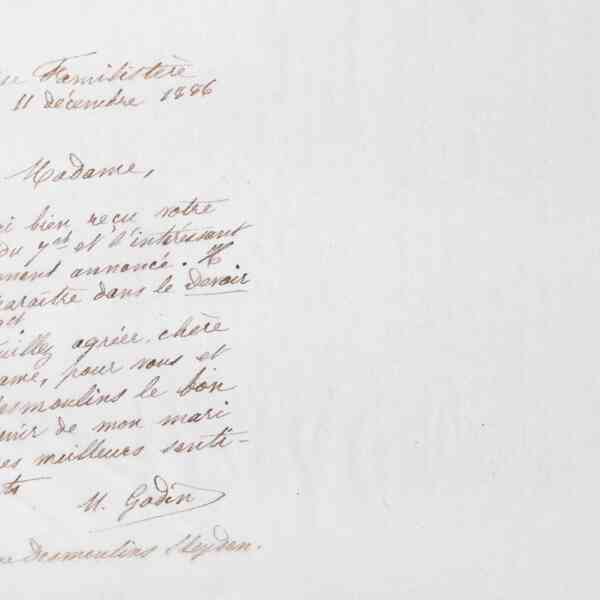 Familistère
11 décembre 1886
Madame,
bien reçu votre
du 7 ct et l'intéressant
annoncé. Il
paraître dans le Devoir
ct
agréer, chère
pour vous et
Desmoulins le bon
de mon mari
meilleurs senti-
M. Godin
Desmoulins